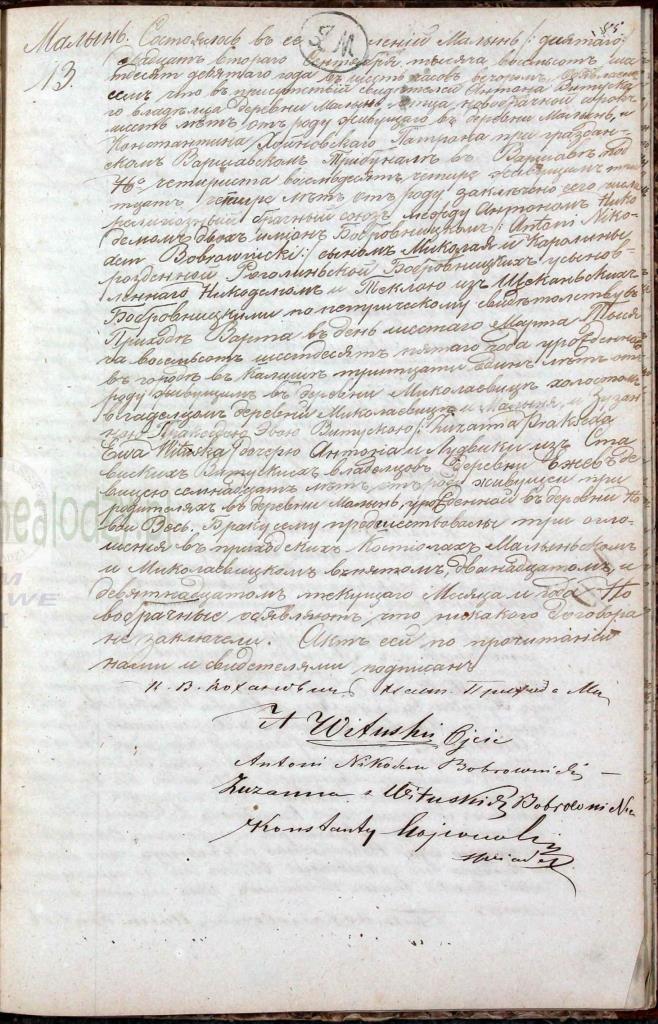 Малынь. Состоялось въ селенiи Малынь /: девятаго
13. двадцать втораго Сентября тысяча восемьсотъ шес
тьдесятъ девятаго года въ шесть часовъ вечеромъ. Объявляемъ
что въ присутствiи свидетелей Антона Витуска
го владельца деревни Малынь отца новобрачной сорокъ
шесть летъ отъ роду живущаго въ деревни Малынь, и
Константина Патрона при граждан
скомъ Варшавскомъ Трибунале въ Варшаве подъ
No четыриста восемдесятъ четыре живущимъ трид
цать четыре летъ отъ роду заключено сего числа
религiозный брачный союзъ между Антономъ Нико
демомъ двохъ имянъ Бобровницкимъ /: Antoni Niko
dem Bobrownicki :/ сыномъ Миколая и Каролины
рожденной Бобровницкихъ усынов
леннаго Никодемомъ и Теклою изъ
Бобровницкими по метрическому свидетельству въ
Приходе Варта въ день шестаго Марта тыся
ча восемьсотъ шестдесятъ пятаго года урожденнымъ
въ городе въ Калише тритцати одинъ летъ отъ
роду живущимъ въ деревни Миколаевице холостомъ
владельцомъ деревни Миколаевице и Малыня, и Зузан
ною Пракседою Эвою Витускою /: Zuzanna Prakseda
Ewa Wituska дочерью Антонiя и Людвики изъ Ста
вискихъ Витускихъ владельцовъ деревни де
вицею семнадцать летъ отъ роду живущей при
родителяхъ въ деревни Малынь, урожденной въ деревни Но
ва Весь. Браку сему предшествовали три огла
шенiя въ приходскихъ Костiолахъ Малыньскомъ
и Миколаевицкомъ въ пятомъ, дванадцатомъ, и
девятнадцатомъ текущаго Месяца и года. Но
вобрачные объявляютъ что никакого договора
не заключили. Актъ сей по прочитанiи
нами и свидетелями подписанъ
К. В. Кохановичъ Прихода Ма
A Wituski Ojcie
Antoni Nikodem Bobrownicki
Zuzanna z Wituskich Bobrownicka
Konstanty